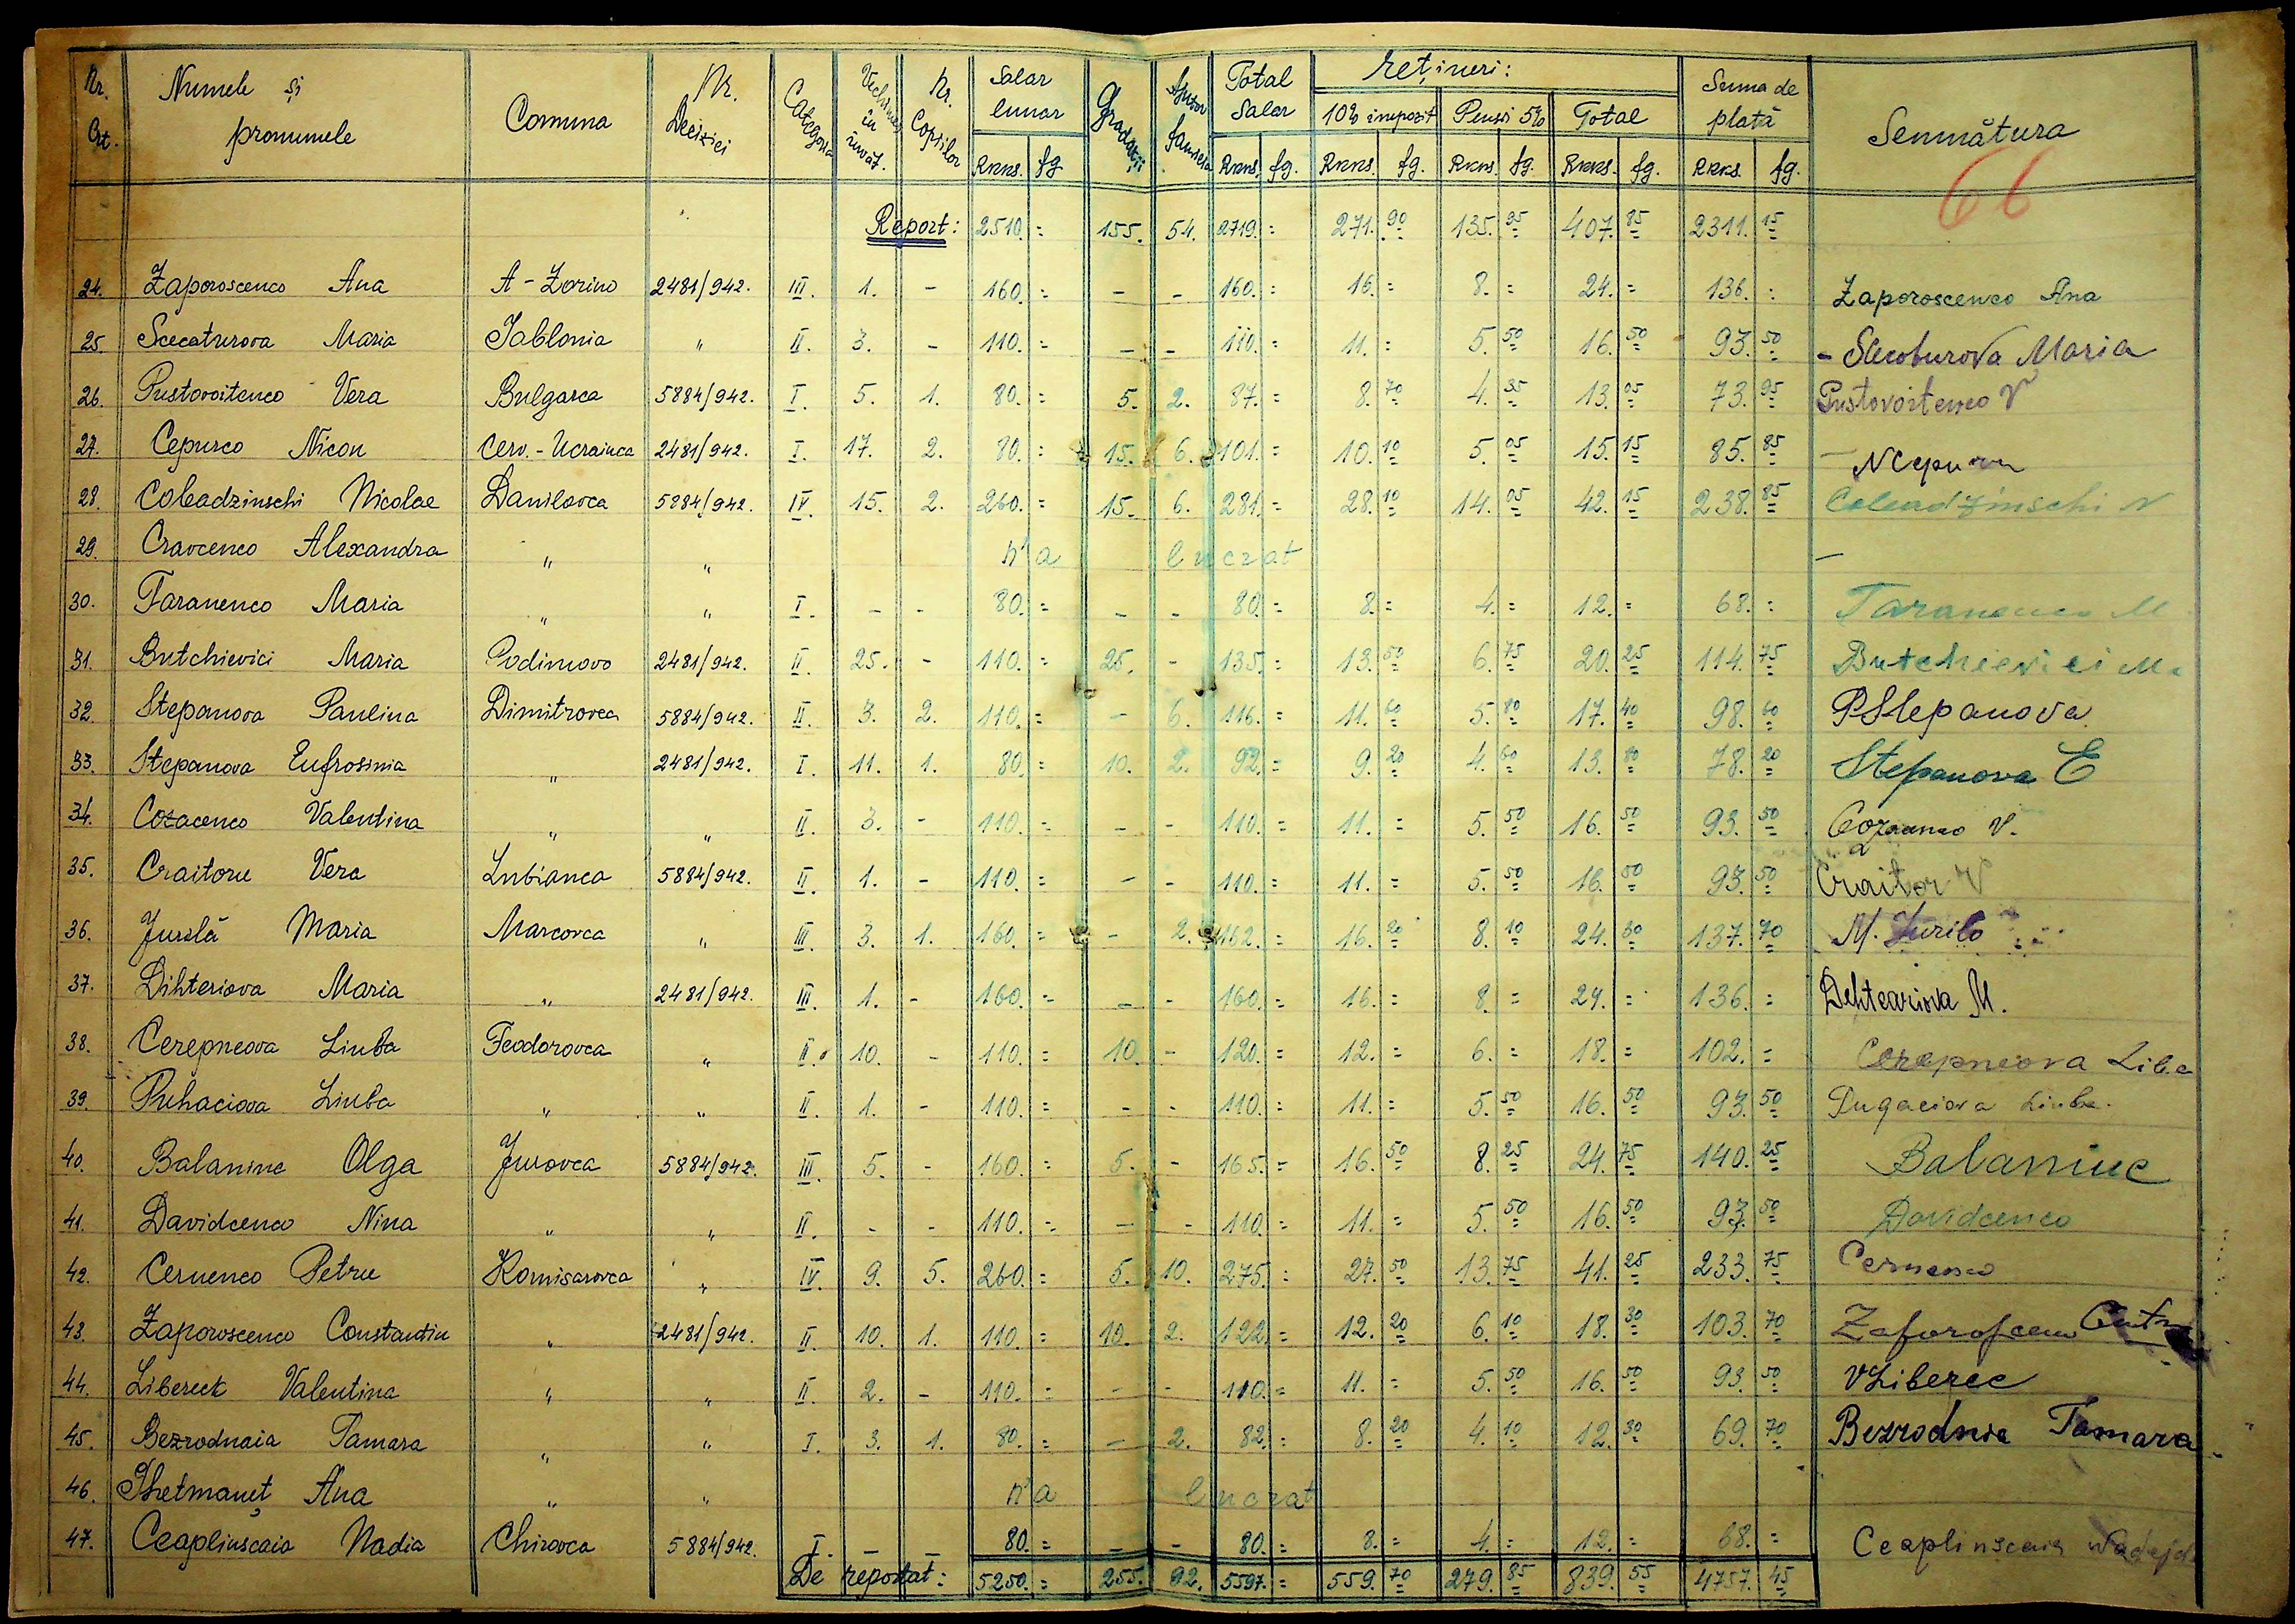 Nr. Crt. Numele și pronumele Comuna Nr. Deciziei Categoria Vechimea în învăț. Nr. Copiilor Salar lunar Gradații Ajutor familia Total Salar rețineri: Suma de plată Semnătura
10% impozit Pensi 5% Total
RKKS. fg. RKKS. fg. RKKS. fg. RKKS. fg. RKKS. fg. RKKS. fg.
66
Report: 2510. = 155. 54. 2719. = 271. 90 135. 95 407. 85 2311. 15
24. Zaporoscenco Ana A-Zorino 2481/942. III. 1. - 160. = - - 160. = 16. = 8. = 24. = 136. = Zaporoscenco Ana
25. Scecaturova Maria Jablonia " II. 3. - 110. = - - 110. = 11. = 5. 50 16. 50 93. 50 - Scecoturova Maria
26. Pustovoitenco Vera Bulgarca 5884/942. I. 5. 1. 80. = 5. 2. 87. = 8. 70 4. 35 13. 05 73. 95 Pustovoitenco V
27. Cepurco Nicon Cerv.-Ucrainca 2481/942. I. 17. 2. 80. = 15. 6. 101. = 10. 10 5. 05 15. 15 85. 85
28. Coleadzinschi Nicolae Danilovca 5884/942. IV. 15. 2. 260. = 15. 6. 281. = 28. 10 14. 05 42. 15 238. 85 Coleadzinschi N
29. Cravcenco Alexandra " " n'a lucrat -
30. Taranenco Maria " " I. - - 80. = - - 80. = 8. = 4. = 12. = 68. = Taranenco M
31. Butchievici Maria Podimovo 2481/942. II. 25. - 110. = 25. - 135. = 13. 50 6. 75 20. 25 114. 75 Butchievici M.
32. Stepanova Paulina Dimitrovca 5884/942. II. 3. 2. 110. = - 6. 116. = 11. 60 5. 80 17. 40 98. 60 PStepanova
33. Stepanova Eufrosinia " 2481/942. I. 11. 1. 80. = 10. 2. 92. = 9. 20 4. 60 13. 80 78. 20 Stepanova E
34. Cozacenco Valentina " " II. 3. - 110. = - - 110. = 11. = 5. 50 16. 50 93. 50 V.
35. Craitoru Vera Lubianca 5884/942. II. 1. - 110. = - - 110. = 11. = 5. 50 16. 50 93. 50 Craitor V
36. Jurilă Maria Marcovca " III. 3. 1. 160. = - 2. 162. = 16. 20 8. 10 24. 30 137. 70 M. Jurilo
37. Dihteriova Maria " 2481/942. III. 1. - 160. = - - 160. = 16. = 8. = 24. = 136. = Dehteariova M.
38. Cerepneova Liuba Feodorovca " II. 10. - 110. = 10. - 120. = 12. = 6. = 18. = 102. = Cerepneova Liba
39. Puhaciova Liuba " " II. 1. - 110. = - - 110. = 11. = 5. 50 16. 50 93. 50 Pugaciova Liuba.
40. Balaniuc Olga Jurovca 5884/942. III. 5. - 160. = 5. - 165. = 16. 50 8. 25 24. 75 140. 25 Balaniuc
41. Davidcenco Nina " " II. - - 110. = - - 110. = 11. = 5. 50 16. 50 93. 50 Davidcenco
42. Cernenco Petru Komisarovca " IV. 9. 5. 260. = 5. 10. 275. = 27. 50 13. 75 41. 25 233. 75 Cernenco
43. Zaporoscenco Constantin " 2481/942. II. 10. 1. 110. = 10. 2. 122. = 12. 20 6. 10 18. 30 103. 70
44. Libereck Valentina " " II. 2. - 110. = - - 110. = 11. = 5. 50 16. 50 93. 50 VLiberec
45. Bezrodnaia Tamara " " I. 3. 1. 80. = - 2. 82. = 8. 20 4. 10 12. 30 69. 70 Bezrodnia Tamara
46. Ghetmaneț Ana " " n'a lucrat
47. Ceaplinscaia Nadia Chirovca 5884/942. I. - 80. = - - 80. = 8. = 4. = 12. = 68. = Ceaplinscaia Nadejd
De reportat: 5250. = 255. 92. 5597. = 559. 70 279. 85 839. 55 4757. 45